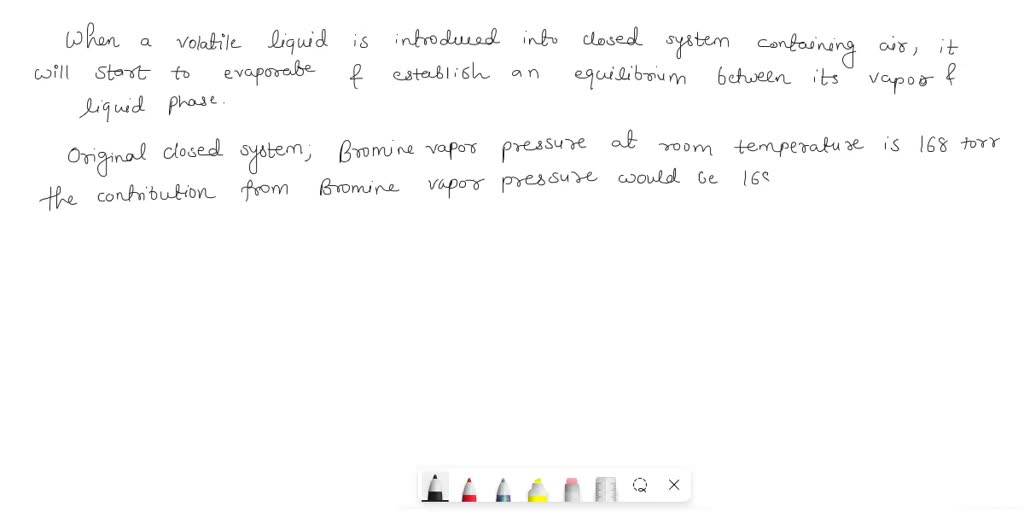 When a volatile liquid is introduced into closed system containing air, it
will start to evaporate & establish an equilibrium between its vapor &
liquid phase.
Original closed system; Bromine vapor pressure at room temperature is 168 torr
the contribution from Bromine vapor pressure would be 168